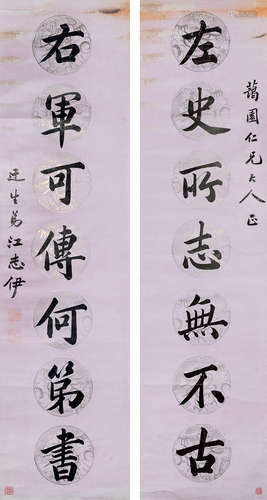 藹園仁兄大人正
左史所志無不古
右軍可傳何第書
江志伊